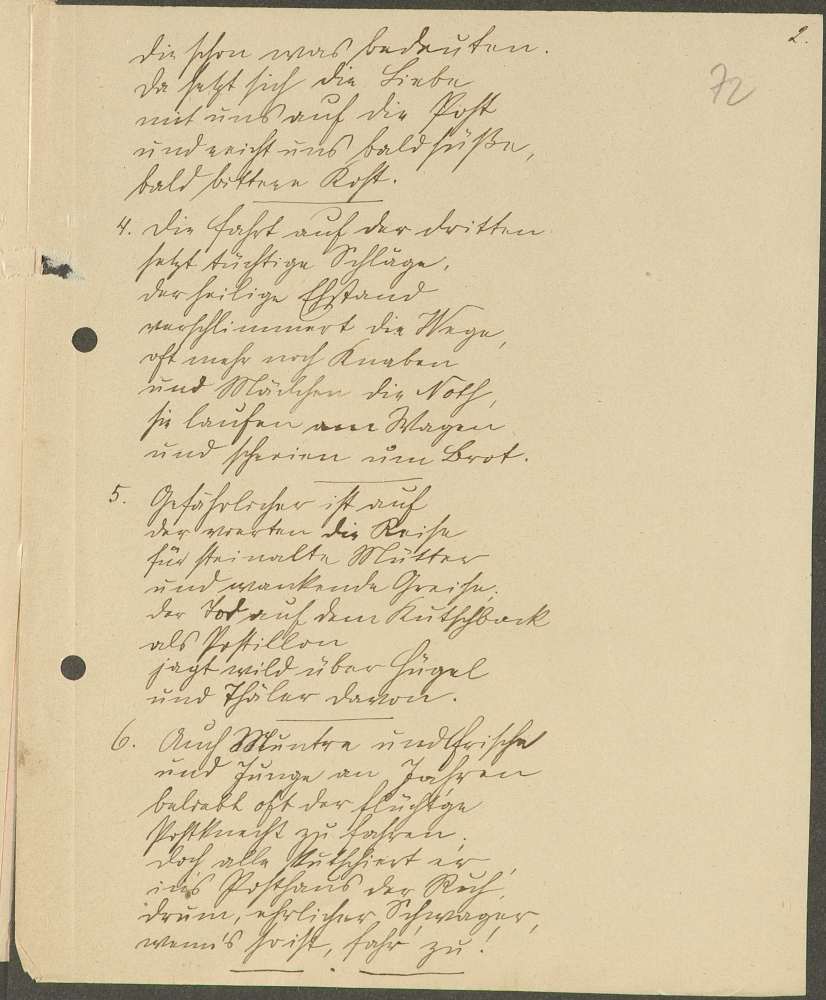 2.
72
die schon was bedeuten.
Da setzt sich die Liebe
mit uns auf die Post
und reicht uns bald süße,
bald bittere Kost.
4. Die Fahrt auf der dritten
setzt tüchtige Schläge,
der heilige Ehstand
verschlimmert die Wege,
oft mehr noch Knaben
und Mädchen die Noth,
sie laufen am Wagen
und schreien um Brot.
5. Gefährlicher ist auf
der vierten die Reise
für steinalte Mütter
und wankende Greise;
der Tod auf dem Kutschbock
als Postillon
jagt wild über Hügel
und Thäler davon.
6. Auch Muntre und Frische
und Junge an Jahren
beliebt oft der flüchtge
Postknecht zu fahren;
doch alle kutschiert er
ins Posthaus der Ruh,
drum, ehrlicher Schwager,
wenn's so ist, fahr zu!